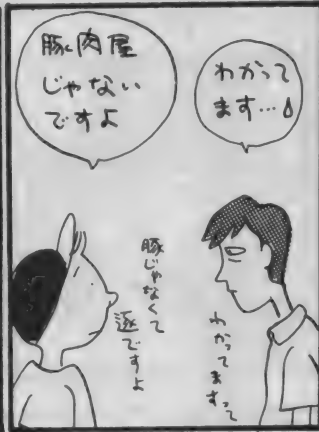 豚肉屋
じゃない
ですよ
わかって
ます…
豚じゃなくて
逐ですよ
わかってますって